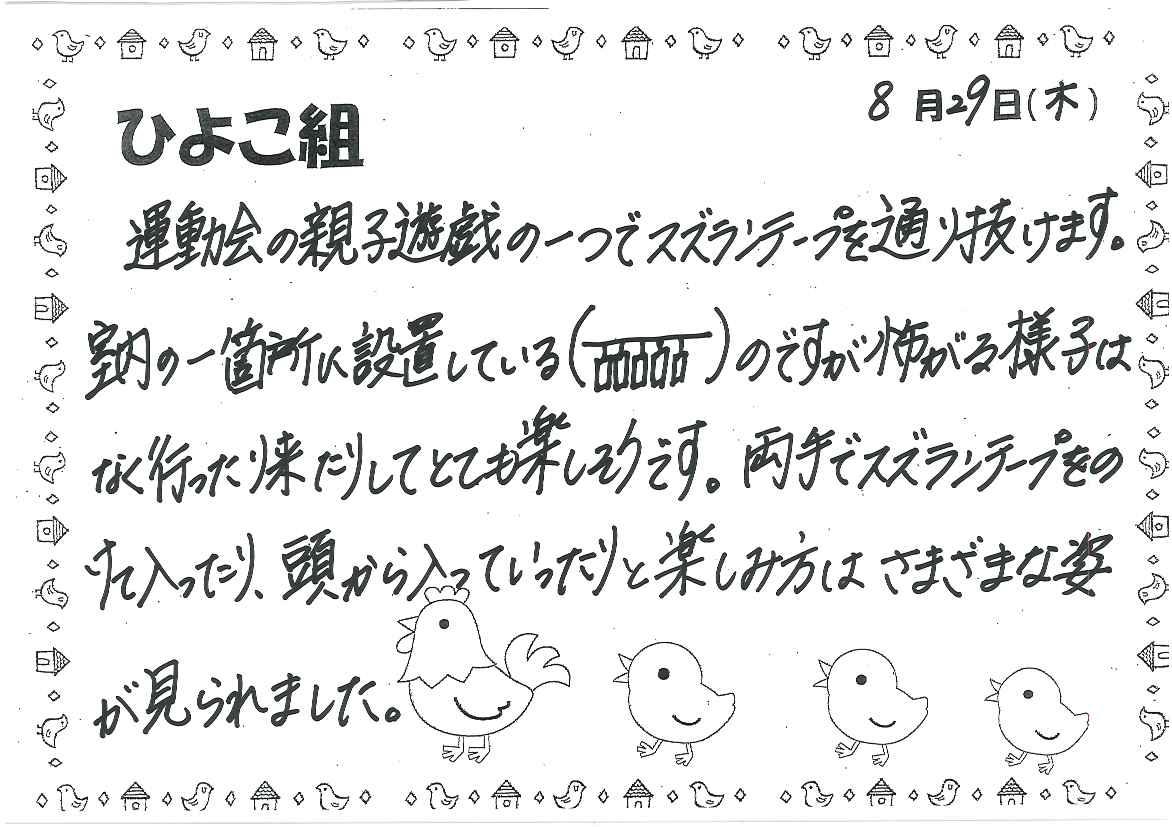 ひよこ組
8月29日(木)
運動会の親子遊戯の一つでスズランテープを通り抜けます。
室内の一箇所に設置している( )のですが怖がる様子は
なく行ったり来たりしてとても楽しそうです。両手でスズランテープをの
けて入ったり、頭から入っていったりと楽しみ方はさまざまな姿
が見られました。